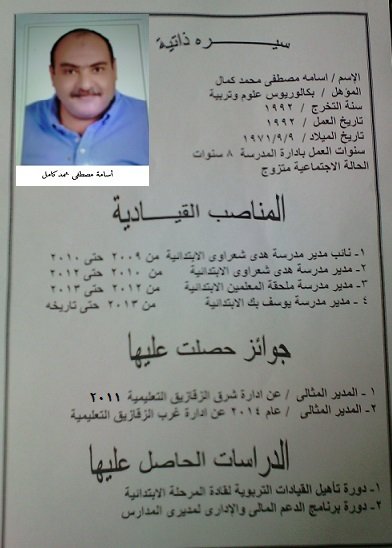 سيـــــره ذاتية
الإسم / اسامه مصطفى محمد كمال
المؤهل / بكالوريوس علوم وتربية
سنة التخرج / ١٩٩٢
تاريخ العمل / ١٩٩٢
تاريخ الميلاد / ١٩٧١/٩/٩
سنوات العمل بادارة المدرسة ٨ سنوات
الحالة الاجتماعية متزوج
أسامة مصطفى محمد كامل
المناصب القيـادية
١- نائب مدير مدرسة هدى شعراوى الابتدائية من ٢٠٠٩ حتى ٢٠١٠
٢- مدير مدرسة هدى شعراوى الابتدائية من ٢٠١٠ حتى ٢٠١٢
٣- مدير مدرسة ملحقة المعلمين الابتدائية من ٢٠١٢ حتى ٢٠١٣
٤ - مدير مدرسة يوسف بك الابتدائية من ٢٠١٣ حتى تاريخه
جوائز حصلت عليها
١ - المدير المثالى / عن ادارة شرق الزقازيق التعليمية ٢٠١١
٢- المدير المثالى / عام ٢٠١٤ عن ادارة غرب الزقازيق التعليمية
الدراسات الحاصل عليها
١- دورة تأهيل القيادات التربوية لقادة المرحلة الابتدائية
٢- دورة برنامج الدعم المالى والإدارى لمديرى المدارس